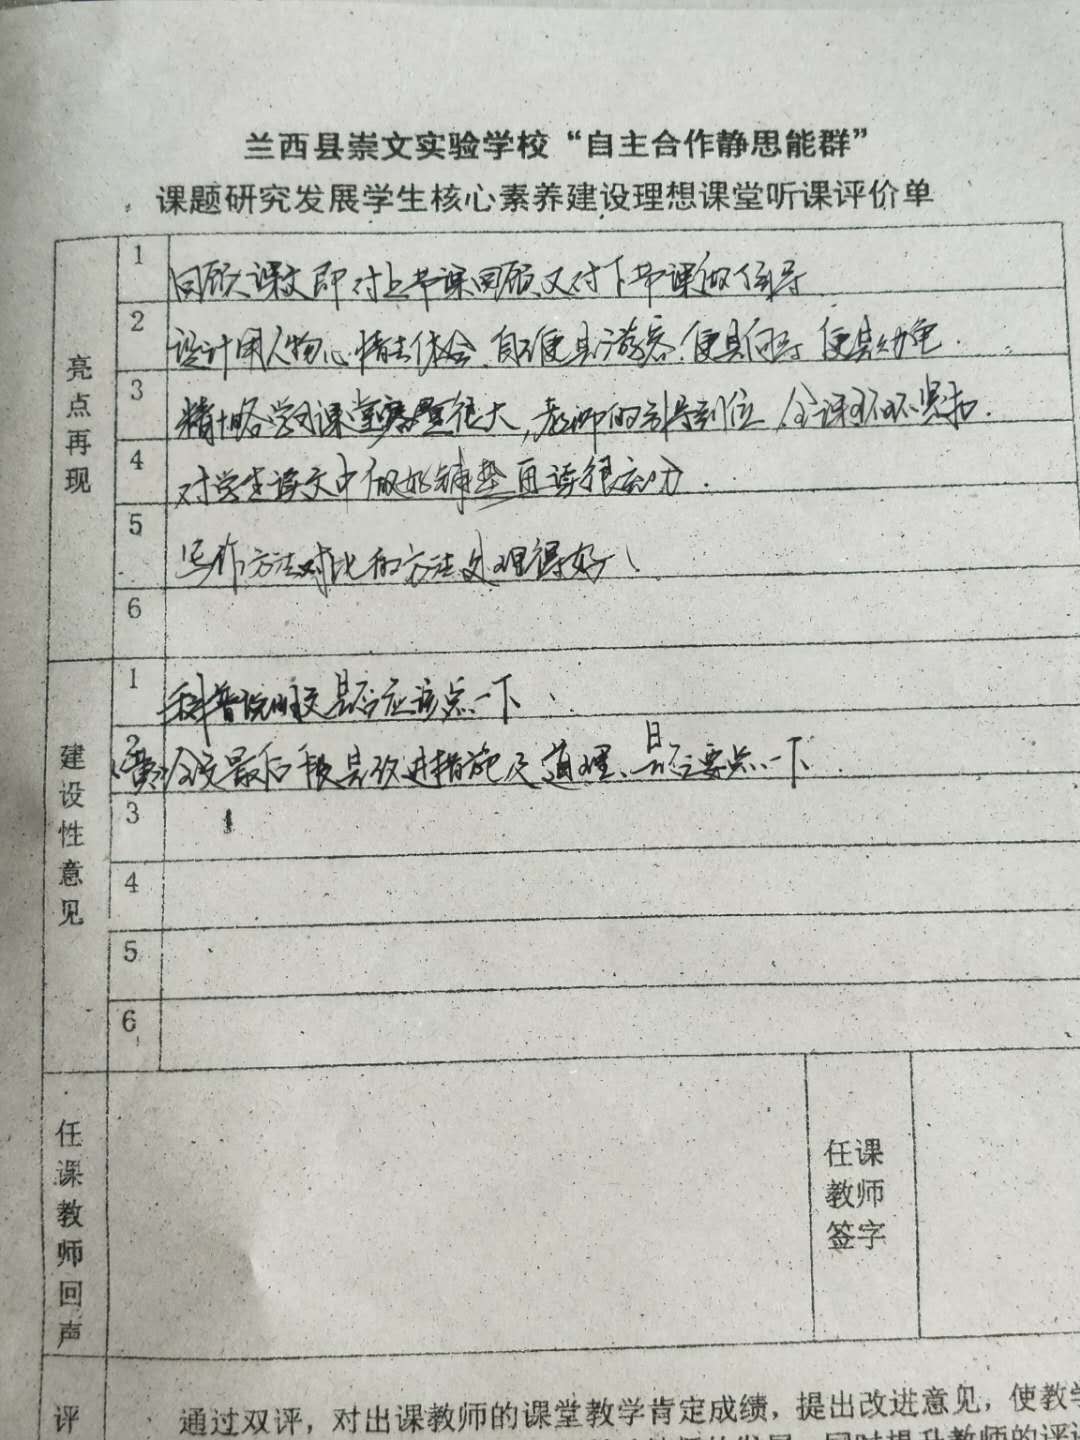 兰西县崇文实验学校“自主合作静思能群”
课题研究发展学生核心素养建设理想课堂听课评价单
亮点再现
1 回顾课文即对上节课回顾又对下节课做引导
2 设计用人物心情去体会、自己便是游客、便是何导 便是幼龟.
3 精略学习课堂容量很大,老师的引导到位 全课环环紧扣.
4 对学生读文中做好铺垫再读很到位.
5 写作方法对比的方法处理得好!
6
建设性意见
1 科普说明文是否应该点一下.
2 全文最后段是改进措施及道理、是否要点一下.
3
4
5
6
任课教师回声
任课教师签字
评 通过双评，对出课教师的课堂教学肯定成绩，提出改进意见，使教学
同时提升教师的评